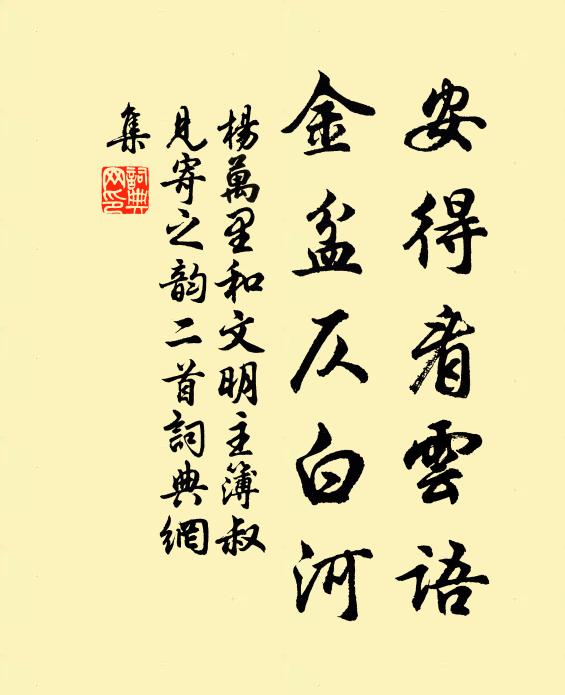 安得看雲語
金盆仄白河
楊萬里和文明主簿叔
見寄之韵二首詞典網
集
詞典
网印